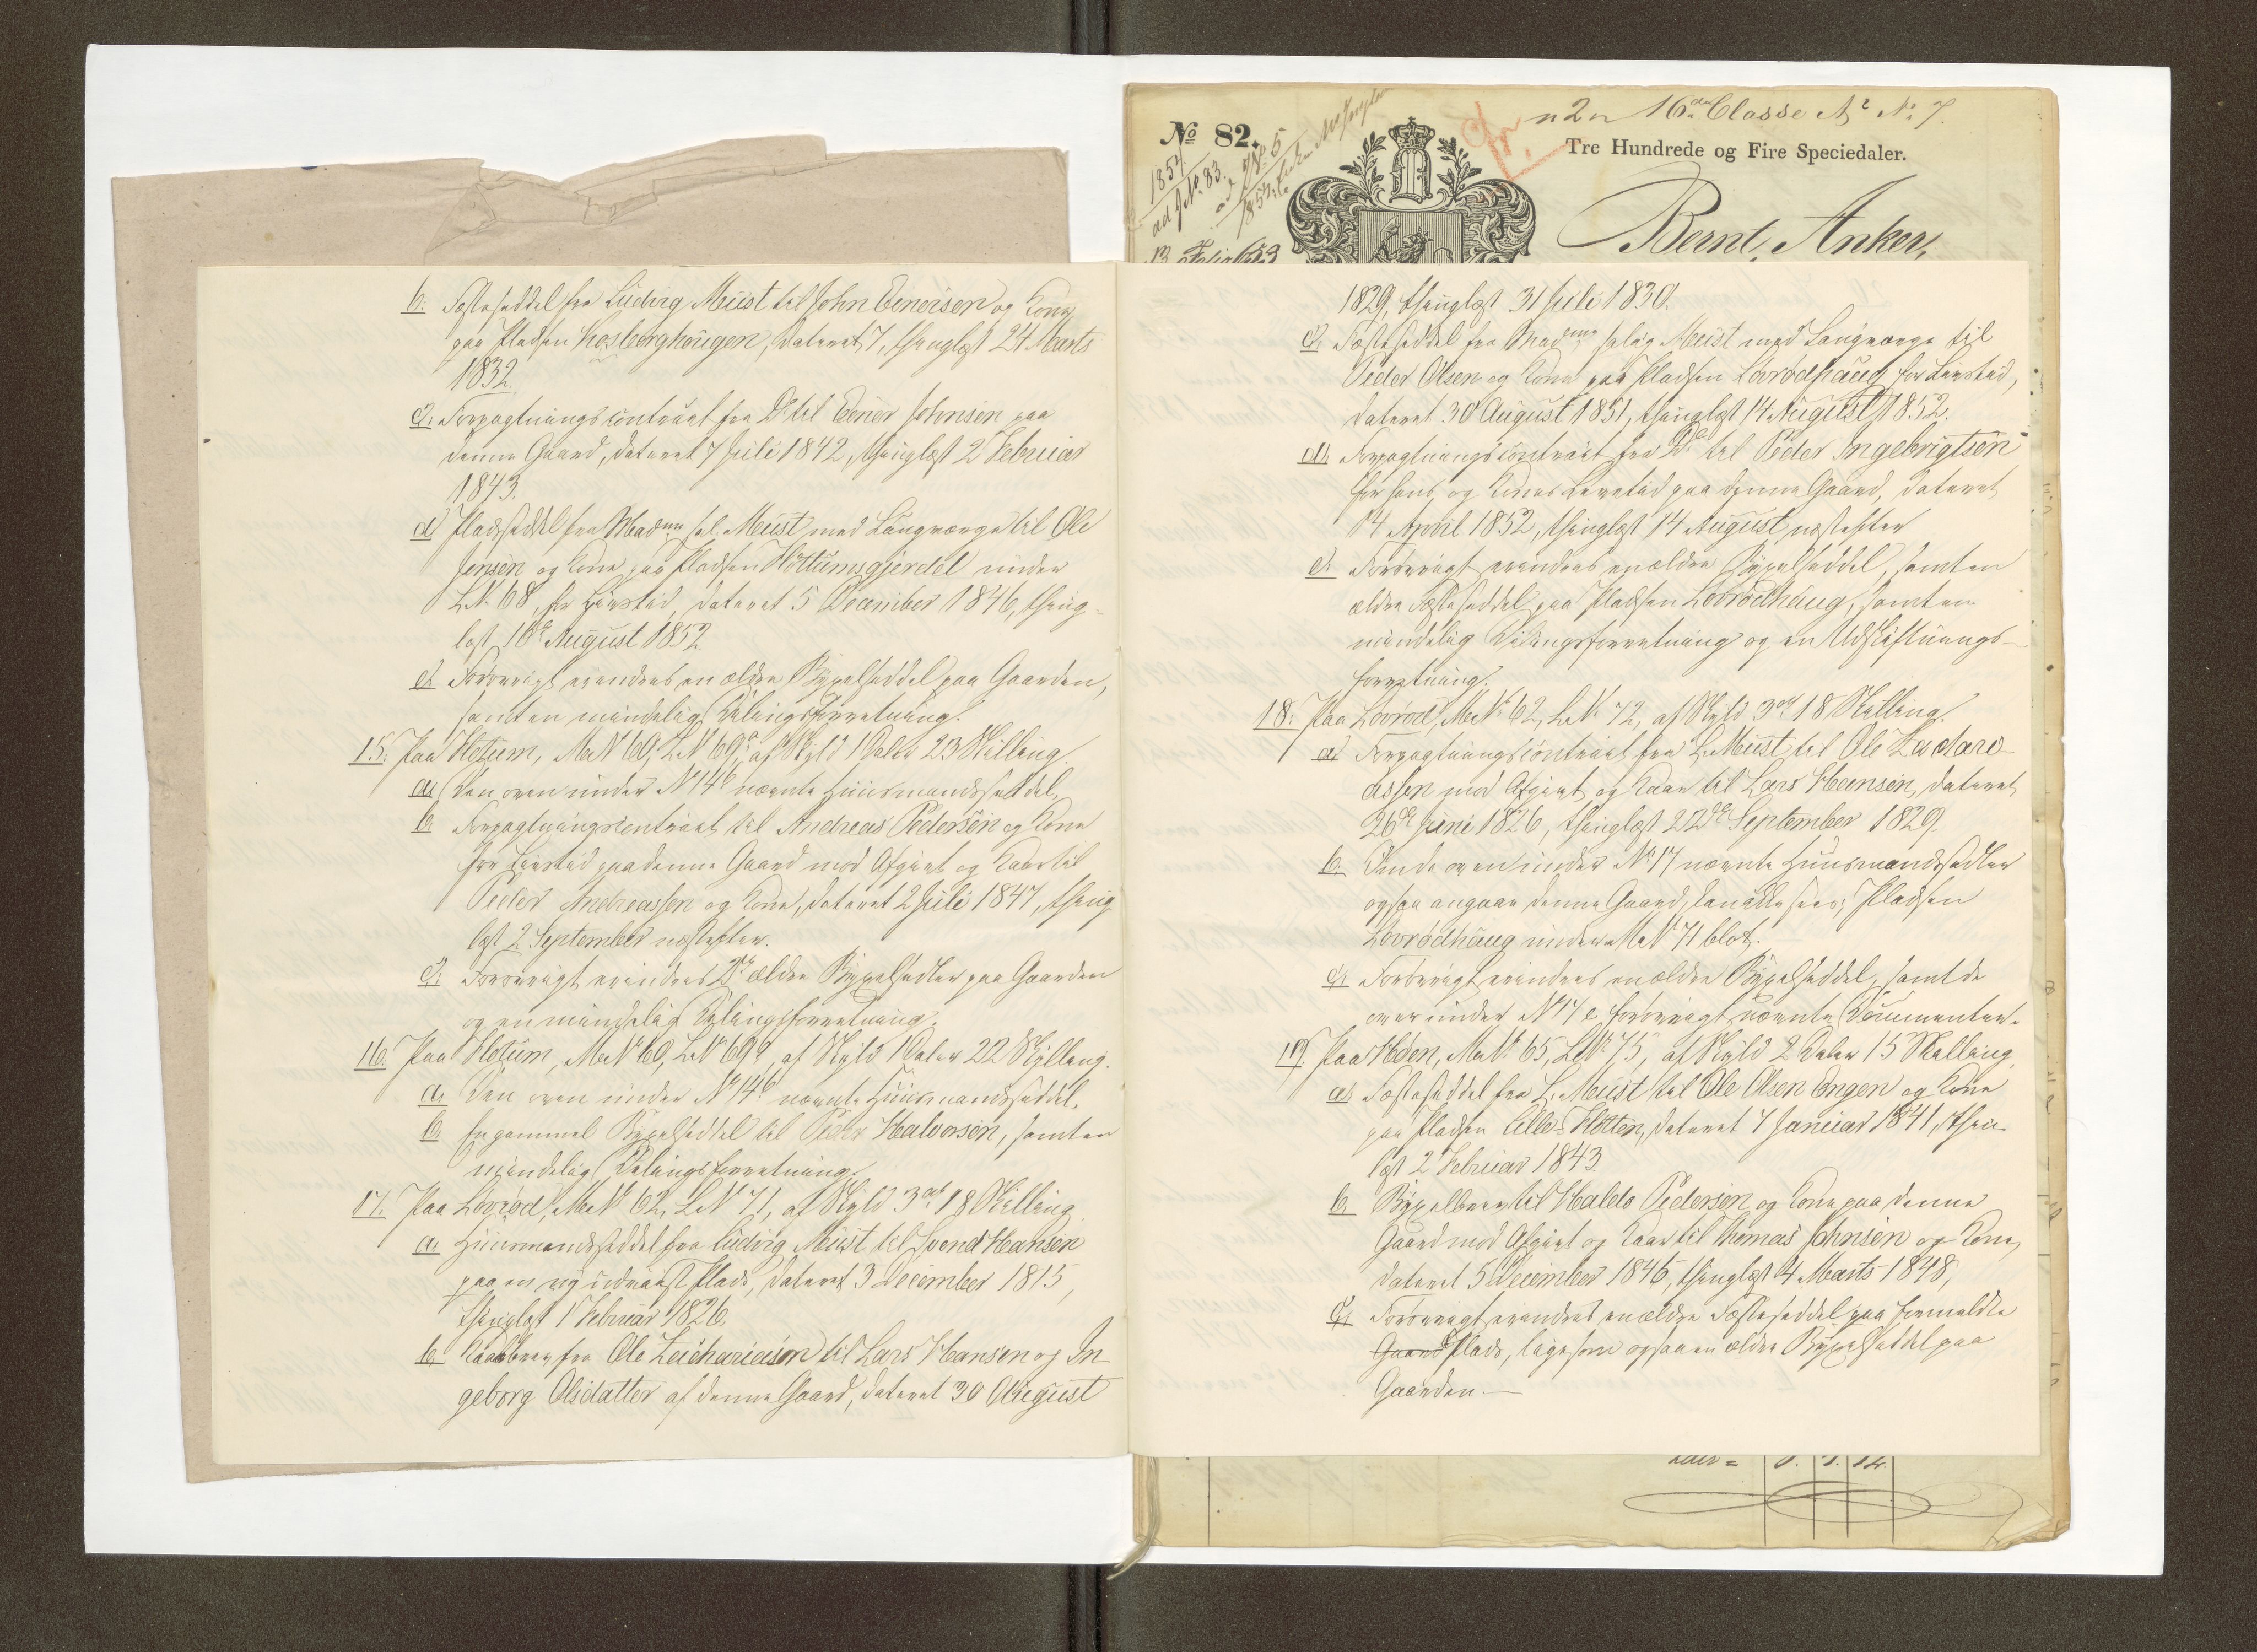 b. Fæsteseddel fra Ludvig Must til John Eenersen og Kone
paa Pladsen Hosberghaugen, dateret 7, thinglæst 24 Marts
1832.
c. Forpagtningscontract fra Do til Eener Johnsen paa
denne Gaard, dateret 7 Juli 1842, thinglæst 2 Februar
1843.
d. Pladsseddel fra Madme sal. Must med Laugværge til Ole
Jensen og Kone paa Pladsen Hottumsgjerdet under
L.N. 68, for Livstid, dateret 5 December 1846, thing-
læst 16de August 1852.
e. Forøvrigt erindres en ældre Bygselseddel paa Gaarden,
samt en mindelig Delingsforretning.
15. Paa Hotum, M.N. 60, L.N. 69, af Skyld 1 Daler 23 Skilling.
a. Den oven under No 14 nævnte Huusmandsseddel.
b. Forpagtningscontract til Andreas Pedersen og Kone
for Livstid paa denne Gaard mod Afgivt og Kaar til
Peder Andreassen og Kone, dateret 2 Juli 1847, thing-
læst 2 September næstefter.
c. Forøvrigt erindres 2de ældre Bygselsedler paa Gaarden
og en mindelig Delingsforretning.
16. Paa Hotum, M.No 60, L.No 69, af Skyld 1 Daler 22 Skilling.
a. Den oven under No 14 nævnte Huusmandsseddel.
b. En gammel Bygselseddel til Peder Halvorsen, samt en
mindelig Delingsforretning.
17. Paa Lovrød, M.N. 62, L.N. 71, af Skyld 3 ort 18 Skilling.
a. Huusmandsseddel fra Ludvig Must til Svend Hansen
paa en ny udviist Plads, dateret 3 December 1815,
thinglæst 1 Februar 1826.
b. Kaarbrev fra Ole Zachariasen til Lars Hansen og In-
geborg Olsdatter af denne Gaard, dateret 30 August
No 82.
1854.
ad J.No. 83.
n2n 16de Classe No 7.
Tre Hundrede og Fire Speciedaler.
Bernt Anker,
1829, thinglæst 31 Juli 1830.
c. Fæsteseddel fra Madme salig Must med Laugværge til
Peder Olsen og Kone paa Pladsen Lovrødhaug for Livstid,
dateret 30 August 1851, thinglæst 14 August 1852.
d. Forpagtningscontract fra Do til Peder Ingebrigtsen
for hans og Kones Levetid paa denne Gaard, dateret
14 April 1852, thinglæst 14 August næstefter
e. Forøvrigt erindres en ældre Bygselseddel, samt en
ældre Fæsteseddel paa Pladsen Lovrødhaug, samt en
mindelig Delingsforretning og en Udskiftnings-
forretning.
18. Paa Lovrød, M.No 62, L.No 72, af Skyld 3 ort 18 Skilling.
a. Forpagtningscontract fra L. Must til Ole Zacari-
assen mod Afgivt og Kaar til Lars Hansen, dateret
26de Juni 1826, thinglæst 22de September 1829.
b. Om de oven under No 17 nævnte Huusmandssedler
ogsaa angaar denne Gaard, Pladsen
Lovrødhaug under M.N. 71 blot.
c. Forøvrigt erindres en ældre Bygselseddel, samt de
oven under No 17 e forøvrigt nævnte Documenter.
19. Paa Heden, M.No 65, L.No 75, af Skyld 2 Daler 15 Skilling.
a. Fæsteseddel fra L. Must til Ole Olsen Engen og Kone
paa Pladsen Lille-Hotten, dateret 7 Januar 1841, thing-
læst 2 Februar 1843.
b. Bygselbrev til Haldo Pedersen og Kone paa denne
Gaard mod Afgivt og Kaar til Thomas Johnsen og Kone,
dateret 5 December 1846, thinglæst 4 Marts 1848,
c. Forøvrigt erindres en ældre Fæsteseddel paa formeldte
Gaard Plads, ligesom ogsaa en ældre Bygselseddel paa
Gaarden.